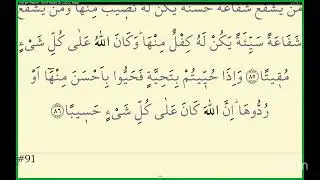 مَنْ يَشْفَعْ شَفَاعَةً حَسَنَةً يَكُنْ لَهُ نَص۪يبٌ مِنْهَا وَمَنْ يَشْفَعْ
شَفَاعَةً سَيِّئَةً يَكُنْ لَهُ كِفْلٌ مِنْهَاۜ وَكَانَ اللّٰهُ عَلٰى كُلِّ شَيْءٍ
مُق۪يتًا ﴿٨٥﴾ وَاِذَا حُيّ۪يتُمْ بِتَحِيَّةٍ فَحَيُّوا بِاَحْسَنَ مِنْهَٓا اَوْ
رُدُّوهَاۜ اِنَّ اللّٰهَ كَانَ عَلٰى كُلِّ شَيْءٍ حَس۪يبًا ﴿٨٦﴾
#91